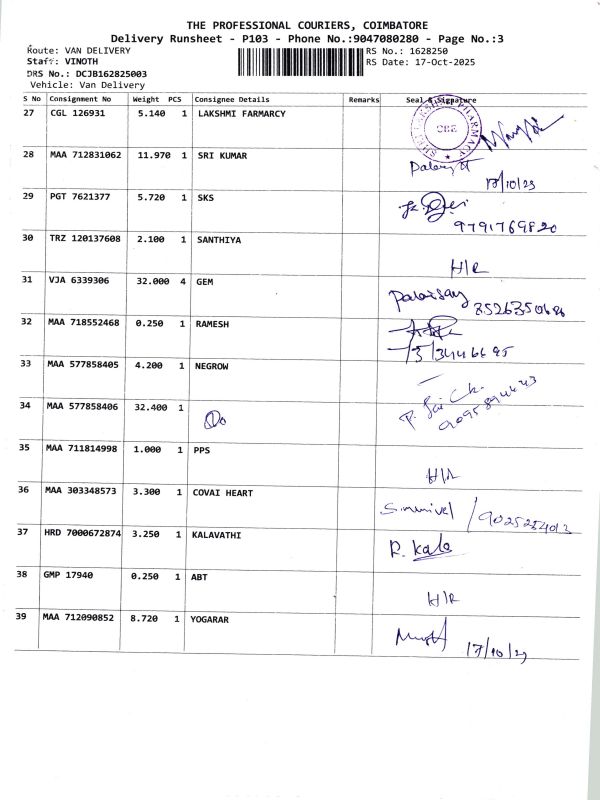 THE PROFESSIONAL COURIERS, COIMBATORE
Delivery Runsheet - P103 - Phone No.:9047080280 - Page No.:3
Route: VAN DELIVERY RS No.: 1628250
Staff: VINOTH RS Date: 17-Oct-2025
DRS No.: DCJB162825003
Vehicle: Van Delivery
S No Consignment No Weight PCS Consignee Details Remarks Seal & Signature
27 CGL 126931 5.140 1 LAKSHMI FARMARCY
28 MAA 712831062 11.970 1 SRI KUMAR
29 PGT 7621377 5.720 1 SKS
9791769820
30 TRZ 120137608 2.100 1 SANTHIYA H/R
31 VJA 6339306 32.000 4 GEM
32 MAA 718552468 0.250 1 RAMESH
33 MAA 577858405 4.200 1 NEGROW
34 MAA 577858406 32.400 1 Do
35 MAA 711814998 1.000 1 PPS H/R
36 MAA 303348573 3.300 1 COVAI HEART
37 HRD 7000672874 3.250 1 KALAVATHI R. Kala
38 GMP 17940 0.250 1 ABT H/R
39 MAA 712090852 8.720 1 YOGARAR